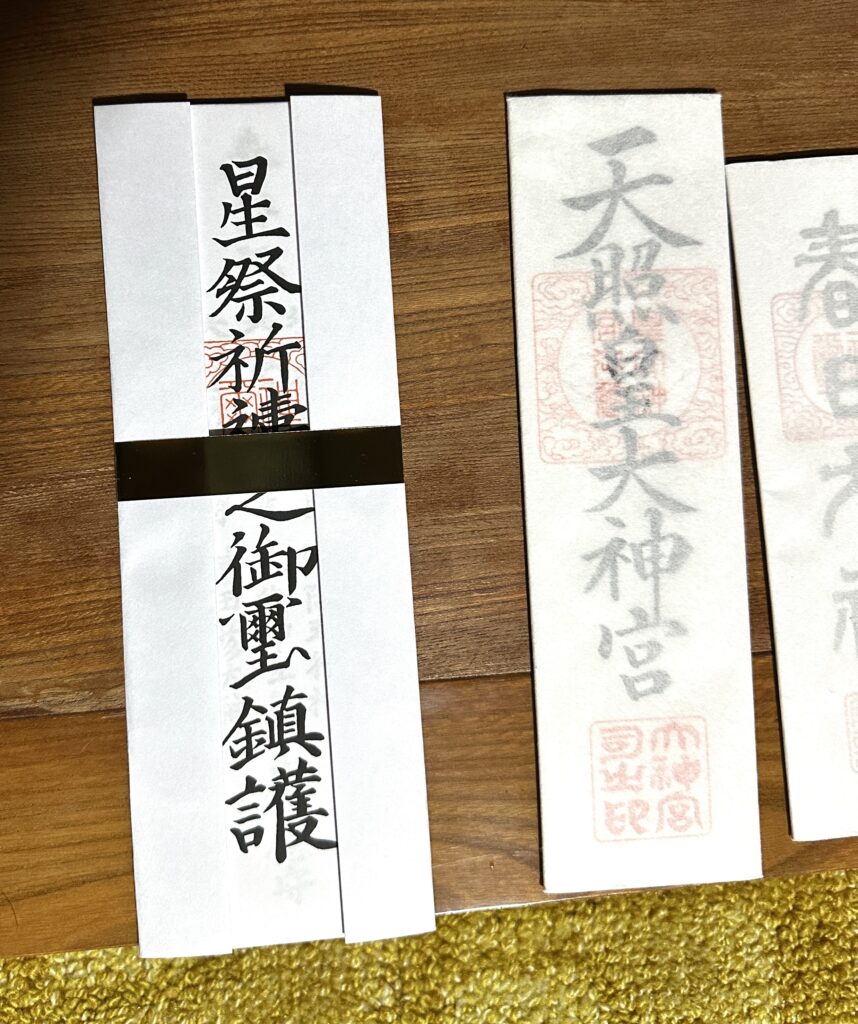 星祭祈祷之御璽鎮護
天照皇大神宮
大神宮
司之印
春日大